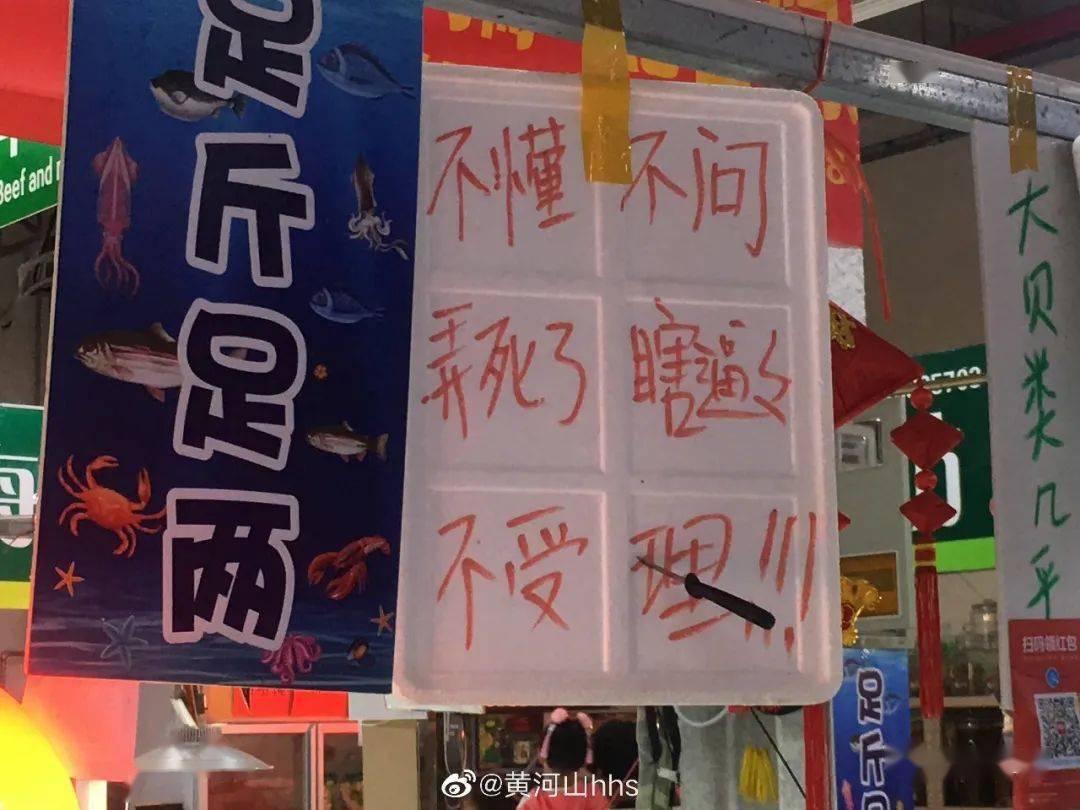 足斤足两
不懂 不问
弄死了 瞎逼く
不受 理!!!
大贝类几乎
扫码领红包
Beef and
5703
足斤足
@黄河山hhs